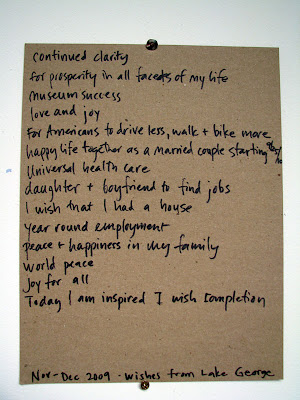 continued clarity
for prosperity in all facets of my life
museum success
love and joy
For Americans to drive less, walk + bike more
happy life together as a married couple starting
Universal health care
daughter + boyfriend to find jobs
I wish that I had a house
year round employment
peace + happiness in my family
world peace
Joy for all
Today I am inspired I wish completion
Nov-Dec 2009 - wishes from Lake George